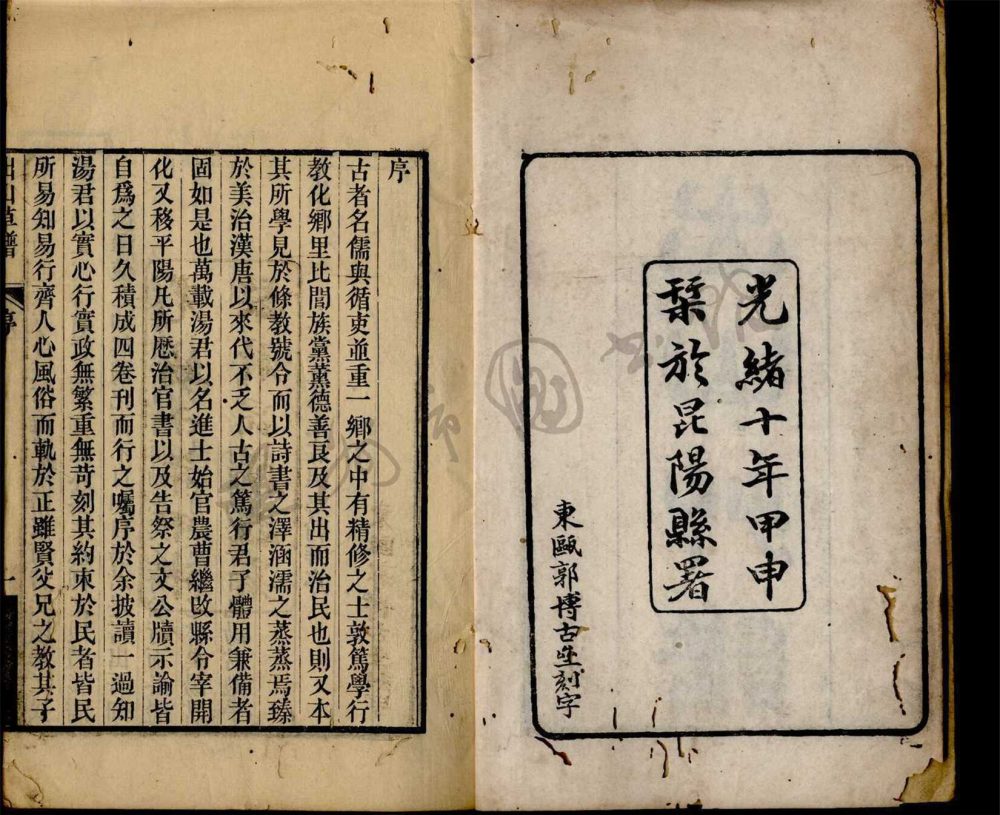 光緒十年甲申
栞於昆陽縣署
東甌郭博古生刻字
序
古者名儒與循吏並重一鄉之中有精修之士敦篤學行
教化鄉里比閭族黨薰德善良及其出而治民也則又本
其所學見於條教號令而以詩書之澤涵濡之蒸蒸焉臻
於美治漢唐以來代不乏人古之篤行君子體用兼備者
固如是也萬載湯君以名進士始官農曹繼改縣令宰開
化又移平陽凡所歷治官書以及告祭之文公牘示諭皆
自爲之日久積成四卷刊而行之囑序於余披讀一過知
湯君以實心行實政無繁重無苛刻其約束於民者皆民
所易知易行齊人心風俗而軌於正雖賢父兄之教其子
序
一